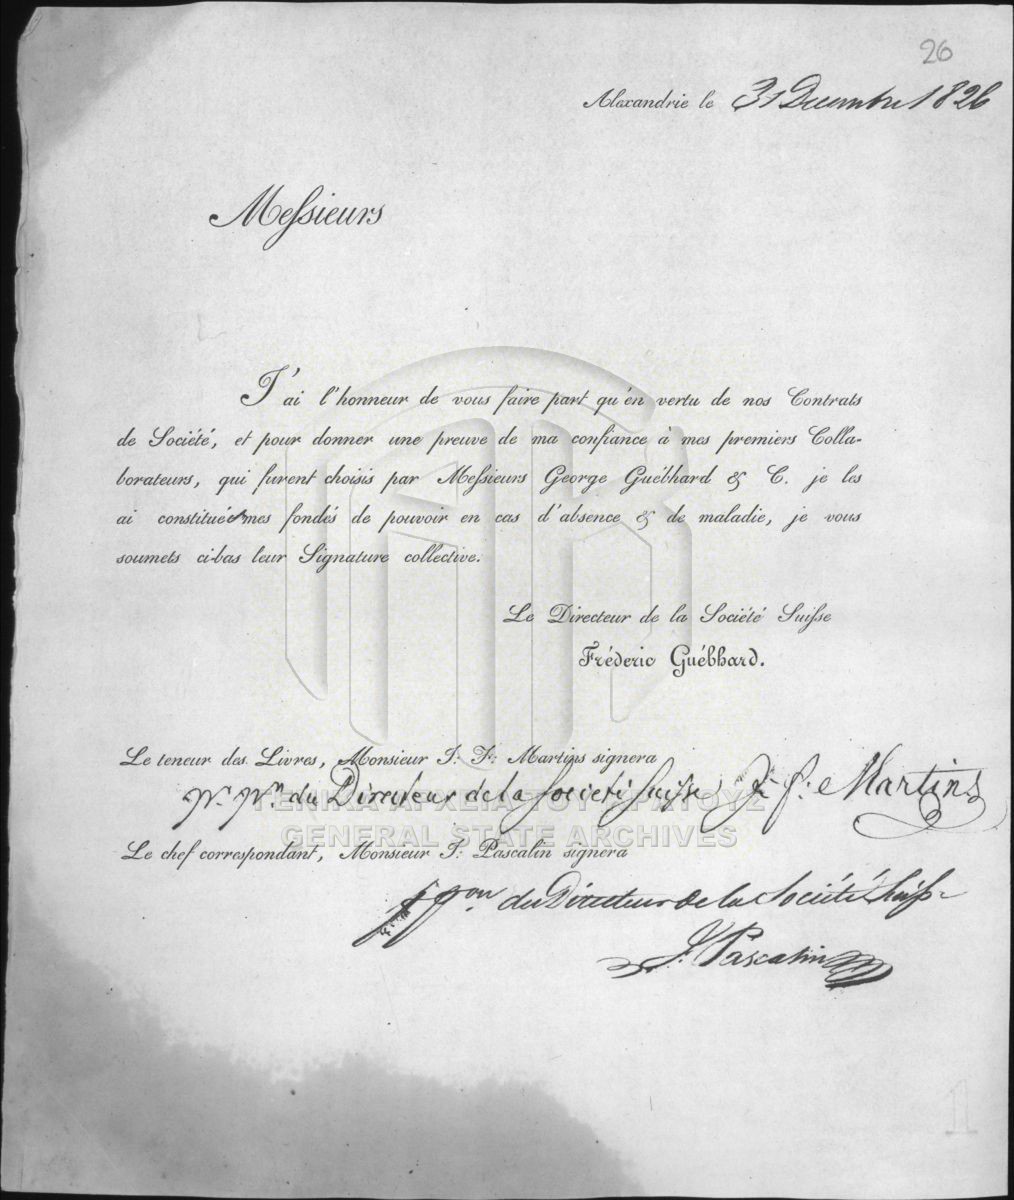 26
Alexandrie le 31 Decembre 1826
Messieurs
J'ai l'honneur de vous faire part qu'en vertu de nos Contrats
de Société, et pour donner une preuve de ma confiance à mes premiers Colla-
borateurs, qui furent choisis par Messieurs George Guébhard & C. je les
ai constitués mes fondés de pouvoir en cas d'absence & de maladie, je vous
soumets ci-bas leur Signature collective.
Le Directeur de la Société Suisse
Fréderic Guébhard.
Le teneur des Livres, Monsieur J. F. Martins signera
Pr. Pon. du Directeur de la Societé Suisse J. F. Martins
ΓΕΝΙΚΑ ΑΡΧΕΙΑ ΤΟΥ ΚΡΑΤΟΥΣ
GENERAL STATE ARCHIVES
Le chef correspondant, Monsieur J. Pascalin signera
pr. pon. du Directeur de la Société Suisse
J. Pascalin
1